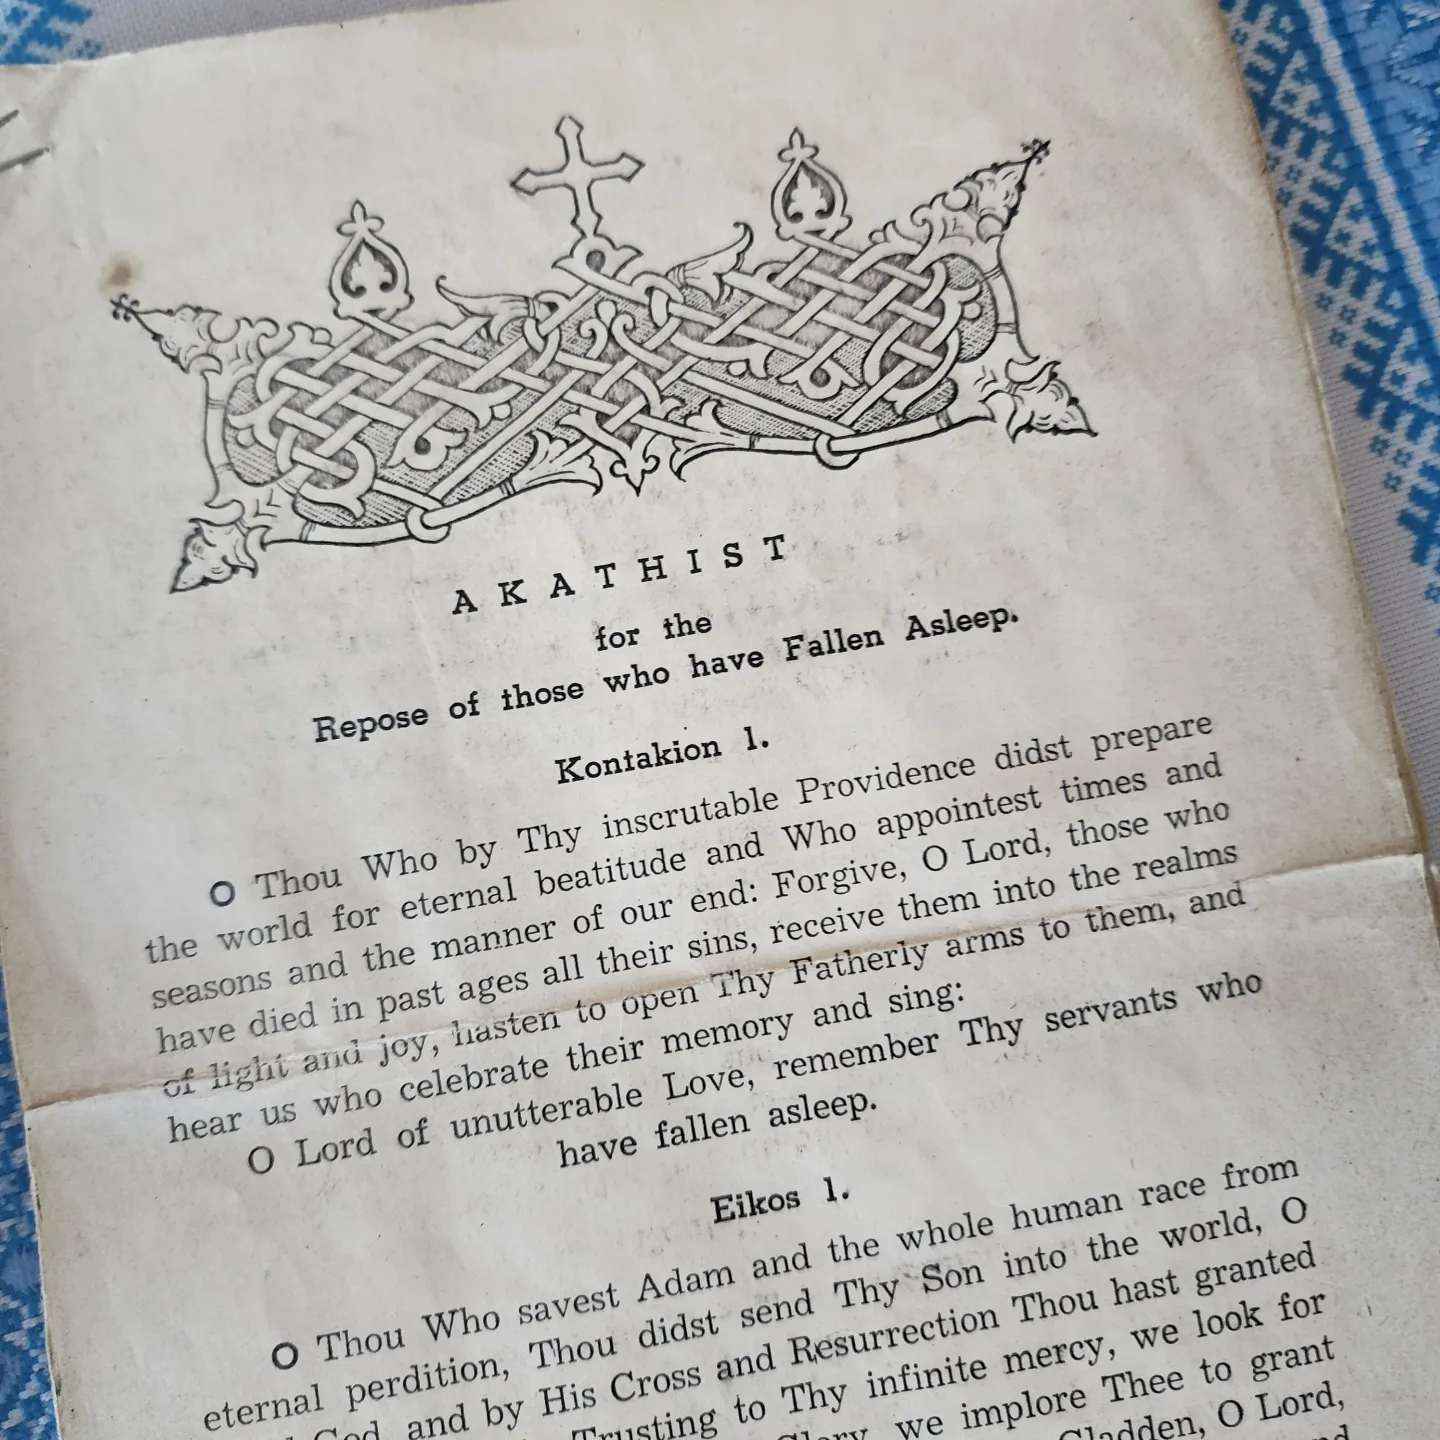 AKATHIST
for the
Repose of those who have Fallen Asleep.
Kontakion 1.
O Thou Who by Thy inscrutable Providence didst prepare
the world for eternal beatitude and Who appointest times and
seasons and the manner of our end: Forgive, O Lord, those who
have died in past ages all their sins, receive them into the realms
of light and joy, hasten to open Thy Fatherly arms to them, and
hear us who celebrate their memory and sing:
O Lord of unutterable Love, remember Thy servants who
have fallen asleep.
Eikos 1.
O Thou Who savest Adam and the whole human race from
eternal perdition, Thou didst send Thy Son into the world, O
God, and by His Cross and Resurrection Thou hast granted
Trusting to Thy infinite mercy, we look for
Glory, we implore Thee to grant
Gladden, O Lord,